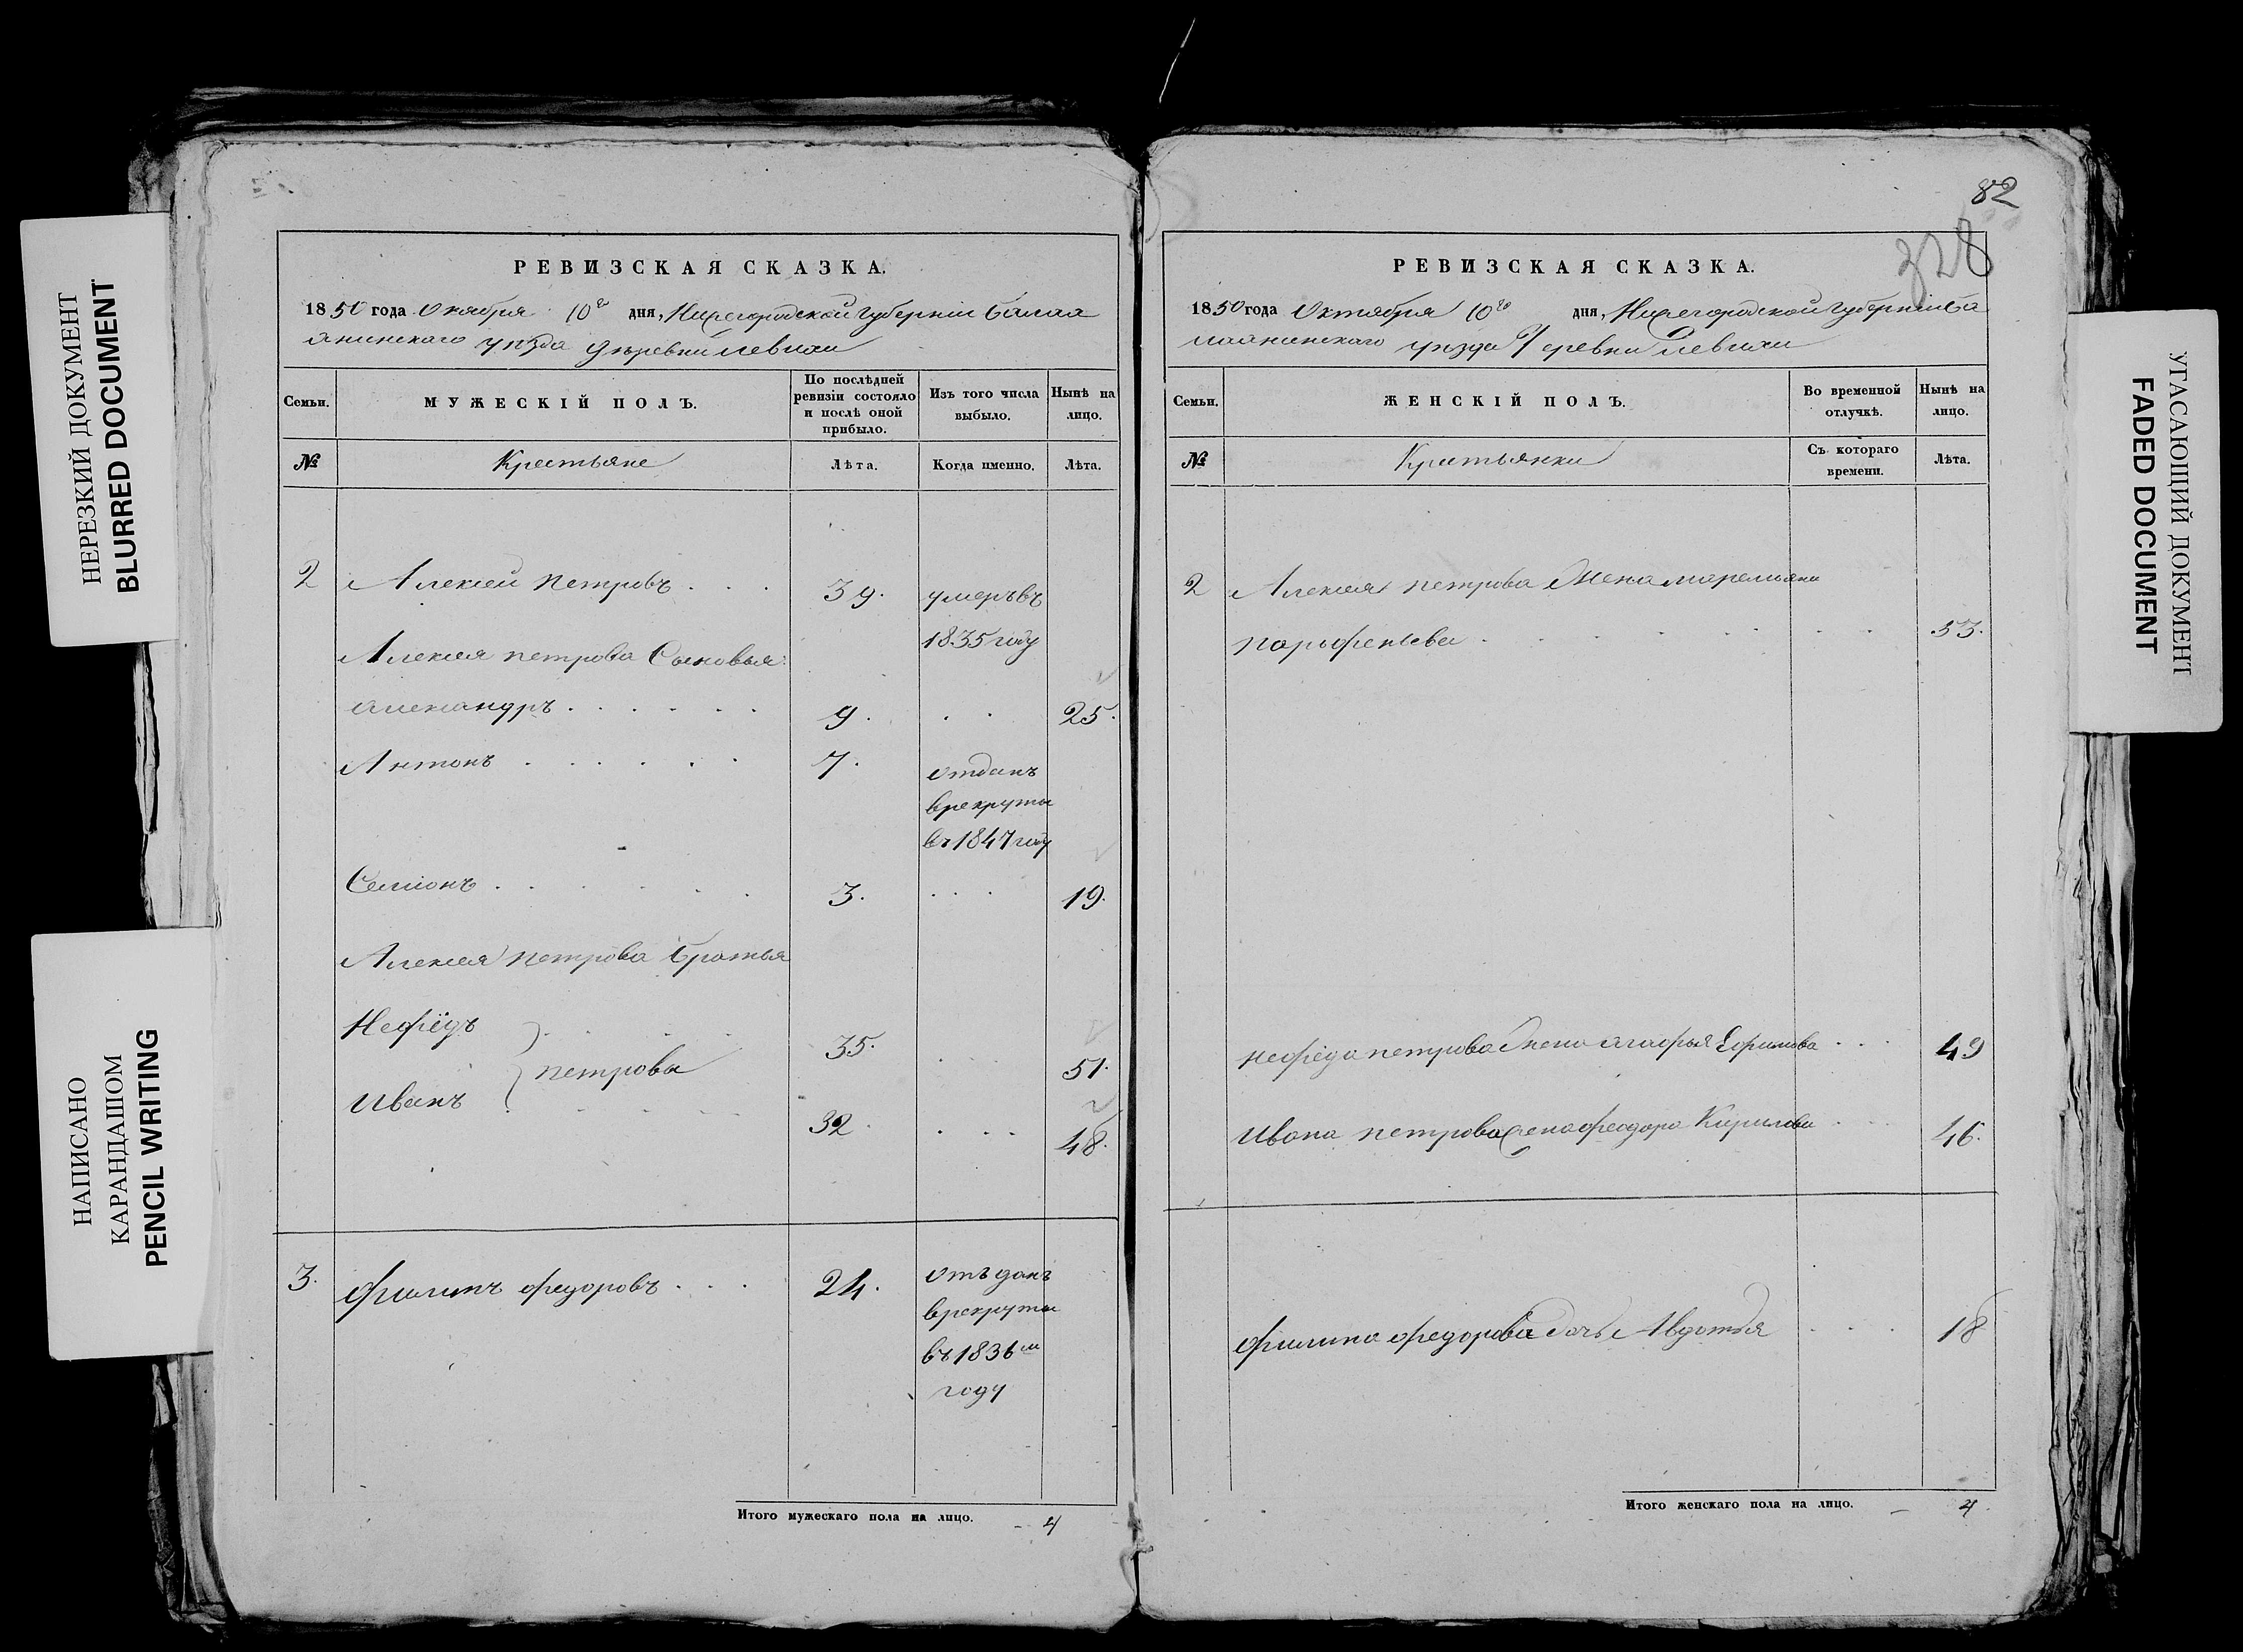 НЕРЕЗКИЙ ДОКУМЕНТ
BLURRED DOCUMENT
НАПИСАНО
КАРАНДАШОМ
PENCIL WRITING
РЕВИЗСКАЯ СКАЗКА.
1850 года Октября 10го дня, Нижегородской губерніи Балах
нинскаго уѣзда деревни
Семьи.
МУЖЕСКІЙ ПОЛЪ.
По послѣдней ревизіи состояло и послѣ оной прибыло.
Изъ того числа выбыло.
Нынѣ на лицо.
№ Крестьяне Лѣта. Когда именно. Лѣта.
2 Алексей петровъ . . . 39. умеръ въ
1835 году
Алексея петрова Сыновья
александръ . . . . . . 9. . . 25.
Антонъ . . . . . . 7. отданъ
в рекруты
въ 1847 году
Семіонъ . . . . . . 3. . . . 19.
Алексея петрова братья
Нефёдъ . . . . 35. . . . 51.
петровы
Иванъ . . . . 32. . . . 48.
3. филипъ федоровъ . . . 24. отъданъ
в рекруты
въ 1836м
году
Итого мужескаго пола на лицо. - 4
82
328
РЕВИЗСКАЯ СКАЗКА.
1850 года Октября 10го дня, Нижегородской губерніи Ба
лахнинскаго уѣзда деревни
Семьи.
ЖЕНСКІЙ ПОЛЪ.
Во временной отлучкѣ.
Нынѣ на лицо.
№ Крестьянки Съ котораго времени. Лѣта.
2 Алексея петрова Жена маремьяна
парфеньева . . . . . . . 53.
нефёда петрова жена агафья Ефимова . . . 49
Ивана петрова жена феодора Кирилова . . . 46.
филипа федорова дочь Авдотья . . . . 18
Итого женскаго пола на лицо. - 4
УГАСАЮЩИЙ ДОКУМЕНТ
FADED DOCUMENT